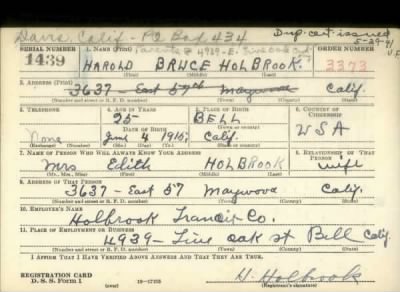 Davis, Calif - PO Box 434
Dup. cert. issued
5-29-41
SERIAL NUMBER
1. NAME (Print)
Parents @ 4939-E. Live oak
ORDER NUMBER
1439
HAROLD BRUCE HOLBROOK
3373
(First) (Middle) (Last)
2. ADDRESS (Print)
3637 - East 57th Maywood Calif.
(Number and street or R. F. D. number) (Town) (County) (State)
3. TELEPHONE
4. AGE IN YEARS
5. PLACE OF BIRTH
6. COUNTRY OF CITIZENSHIP
25
BELL
None
DATE OF BIRTH
June 4 1915
Calif.
USA
(Exchange) (Number)
(Mo.) (Day) (Yr.)
(State or country)
7. NAME OF PERSON WHO WILL ALWAYS KNOW YOUR ADDRESS
8. RELATIONSHIP OF THAT PERSON
Mrs Edith HOLBROOK wife
(Mr., Mrs., Miss) (First) (Middle) (Last)
9. ADDRESS OF THAT PERSON
3637 - East 57 Maywood Calif.
(Number and street or R. F. D. number) (Town) (County) (State)
10. EMPLOYER'S NAME
Holbrook Transit Co.
11. PLACE OF EMPLOYMENT OR BUSINESS
4939 - Live oak st Bell Calif
(Number and street or R. F. D. number) (Town) (County) (State)
I AFFIRM THAT I HAVE VERIFIED ABOVE ANSWERS AND THAT THEY ARE TRUE.
REGISTRATION CARD
D. S. S. Form 1
(over)
H. Holbrook
(Registrant's signature)